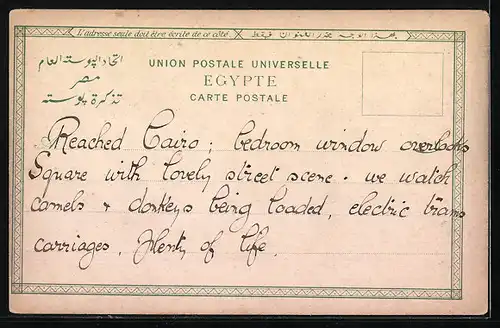 L'adresse seule doit être écrite de ce côté.
بهذا الوجه يحرر العنوان فقط
اتحاد البوسته العام
مصر
تذكرة بوسته
UNION POSTALE UNIVERSELLE
EGYPTE
CARTE POSTALE
Reached Cairo; bedroom window overlooks
Square with lovely street scene. we watch
camels + donkeys being loaded, electric trams
carriages. Plenty of life.